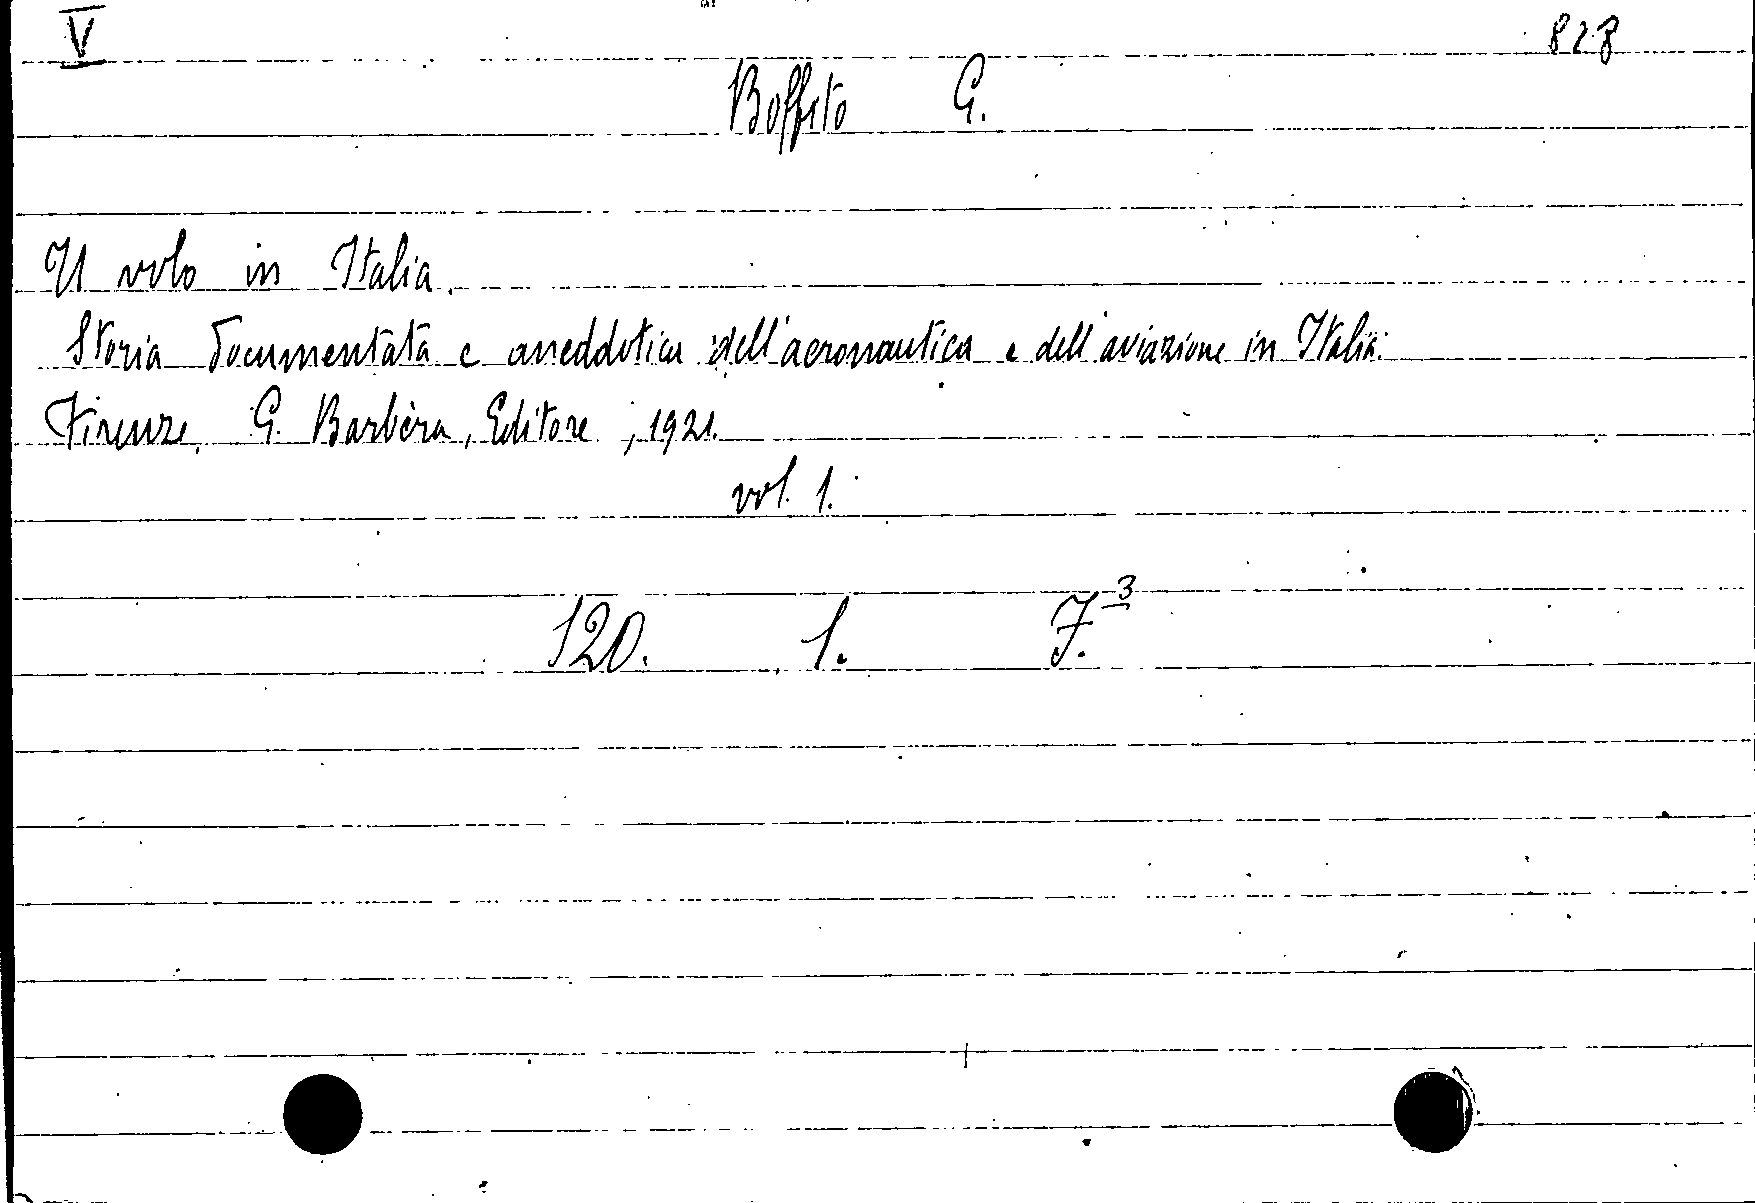 V 828
Boffito G.
Il volo in Italia.
Storia documentata e aneddotica dell'aeronautica e dell'aviazione in Italia.
Firenze, G. Barbèra, Editore, 1921.
vol. 1.
120. 1. F.³